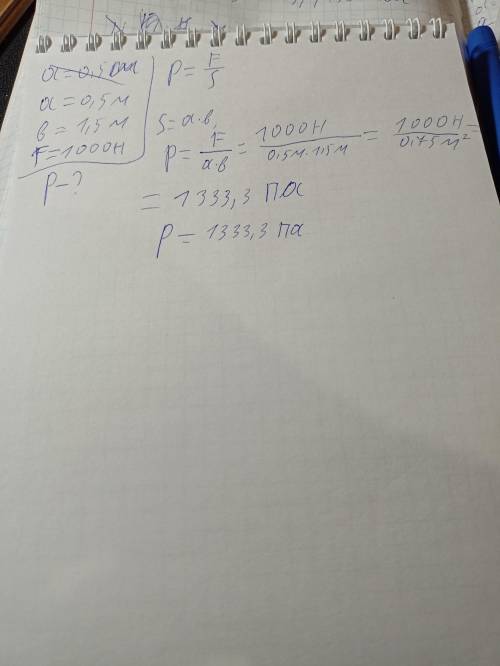 a = 0,5 м
в = 1,5 м
F = 1000Н
P - ?
P = F/S
S = a·в,
P = F/a·в = 1000Н/0,5м·1,5м = 1000Н/0,75м² =
= 1333,3 Па
P = 1333,3 Па